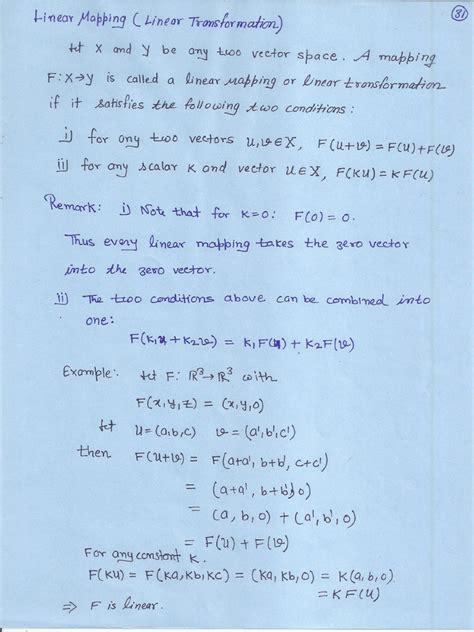 31
Linear Mapping (Linear Transformation)
Let X and Y be any two vector space. A mapping
F:X→Y is called a linear mapping or linear transformation
if it satisfies the following two conditions:
i) for any two vectors u,v∈X, F(u+v)=F(u)+F(v)
ii) for any scalar K and vector u∈X, F(Ku)=KF(u)
Remark: i) Note that for K=0: F(0)=0.
Thus every linear mapping takes the zero vector
into the zero vector.
ii) The two conditions above can be combined into
one:
F(K₁u+K₂v) = K₁F(u)+K₂F(v)
Example: Let F: ℝ³→ℝ³ with
F(x,y,z) = (x,y,0)
Let u=(a,b,c) v=(a',b',c')
then F(u+v) = F(a+a', b+b', c+c')
= (a+a', b+b', 0)
= (a, b, 0) + (a', b', 0)
= F(u) + F(v)
For any constant K.
F(Ku) = F(Ka, Kb, Kc) = (Ka, Kb, 0) = K(a, b, 0)
= KF(u)
⇒ F is linear.